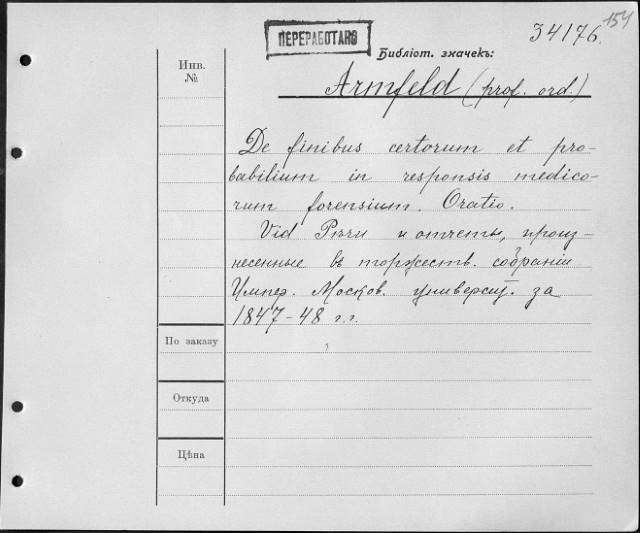 154
34176.
ПЕРЕРАБОТАНО
Библіот. значекъ:
Инв.
№
Armfeld (prof. ord.)
De finibus certorum et pro-
babilium in responsis medico-
rum forensium. Oratio.
Vid Рѣчи и отчеты, произ-
несенные въ торжеств. собраніи
Импер. Москов. университ. за
1847-48 г.г.
По заказу
Откуда
Цѣна